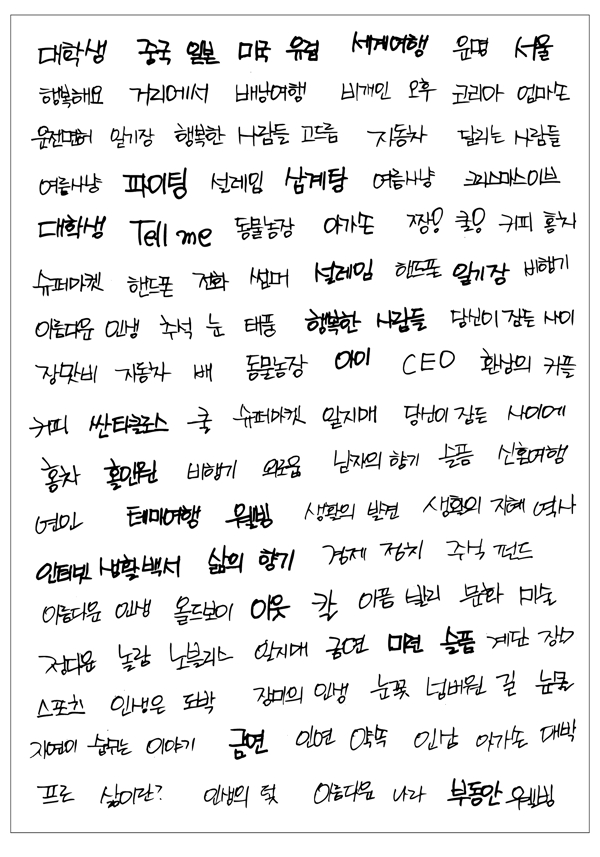 대학생 중국 일본 미국 유럽 세계여행 운명 서울
행복해요 거리에서 배낭여행 비개인 오후 코리아 엄마손
운전면허 일기장 행복한 사람들 고드름 자동차 달리는 사람들
여름사냥 파이팅 설레임 삼계탕 여름사냥 크리스마스이브
대학생 Tell me 동물농장 아가손 짱! 쿨! 커피 홍차
슈퍼마켓 핸드폰 전화 썸머 설레임 핸드폰 일기장 비행기
아름다운 인생 추석 눈 태풍 행복한 사람들 당신이 잠든 사이
장맛비 자동차 배 동물농장 아이 CEO 환상의 커플
커피 싼타클로스 쿨 슈퍼마켓 일지매 당신이 잠든 사이에
홍차 홀인원 비행기 외로움 남자의 향기 슬픔 신혼여행
연인 테마여행 웰빙 생활의 발견 생활의 지혜 역사
인터넷 생활백서 삶의 향기 경제 정치 주식 펀드
아름다운 인생 올드보이 이웃 칼 아픔 빌리 문화 미술
정다운 놀람 노블리스 일지매 공연 미련 슬픔 계단
스포츠 인생은 도박 장미의 인생 눈꽃 넘버원 길 눈물
자연이 숨쉬는 이야기 금연 인연 약속 인삼 아가손 대박
프로 삶이란? 인생의 덫 아름다운 나라 부동안 웰빙